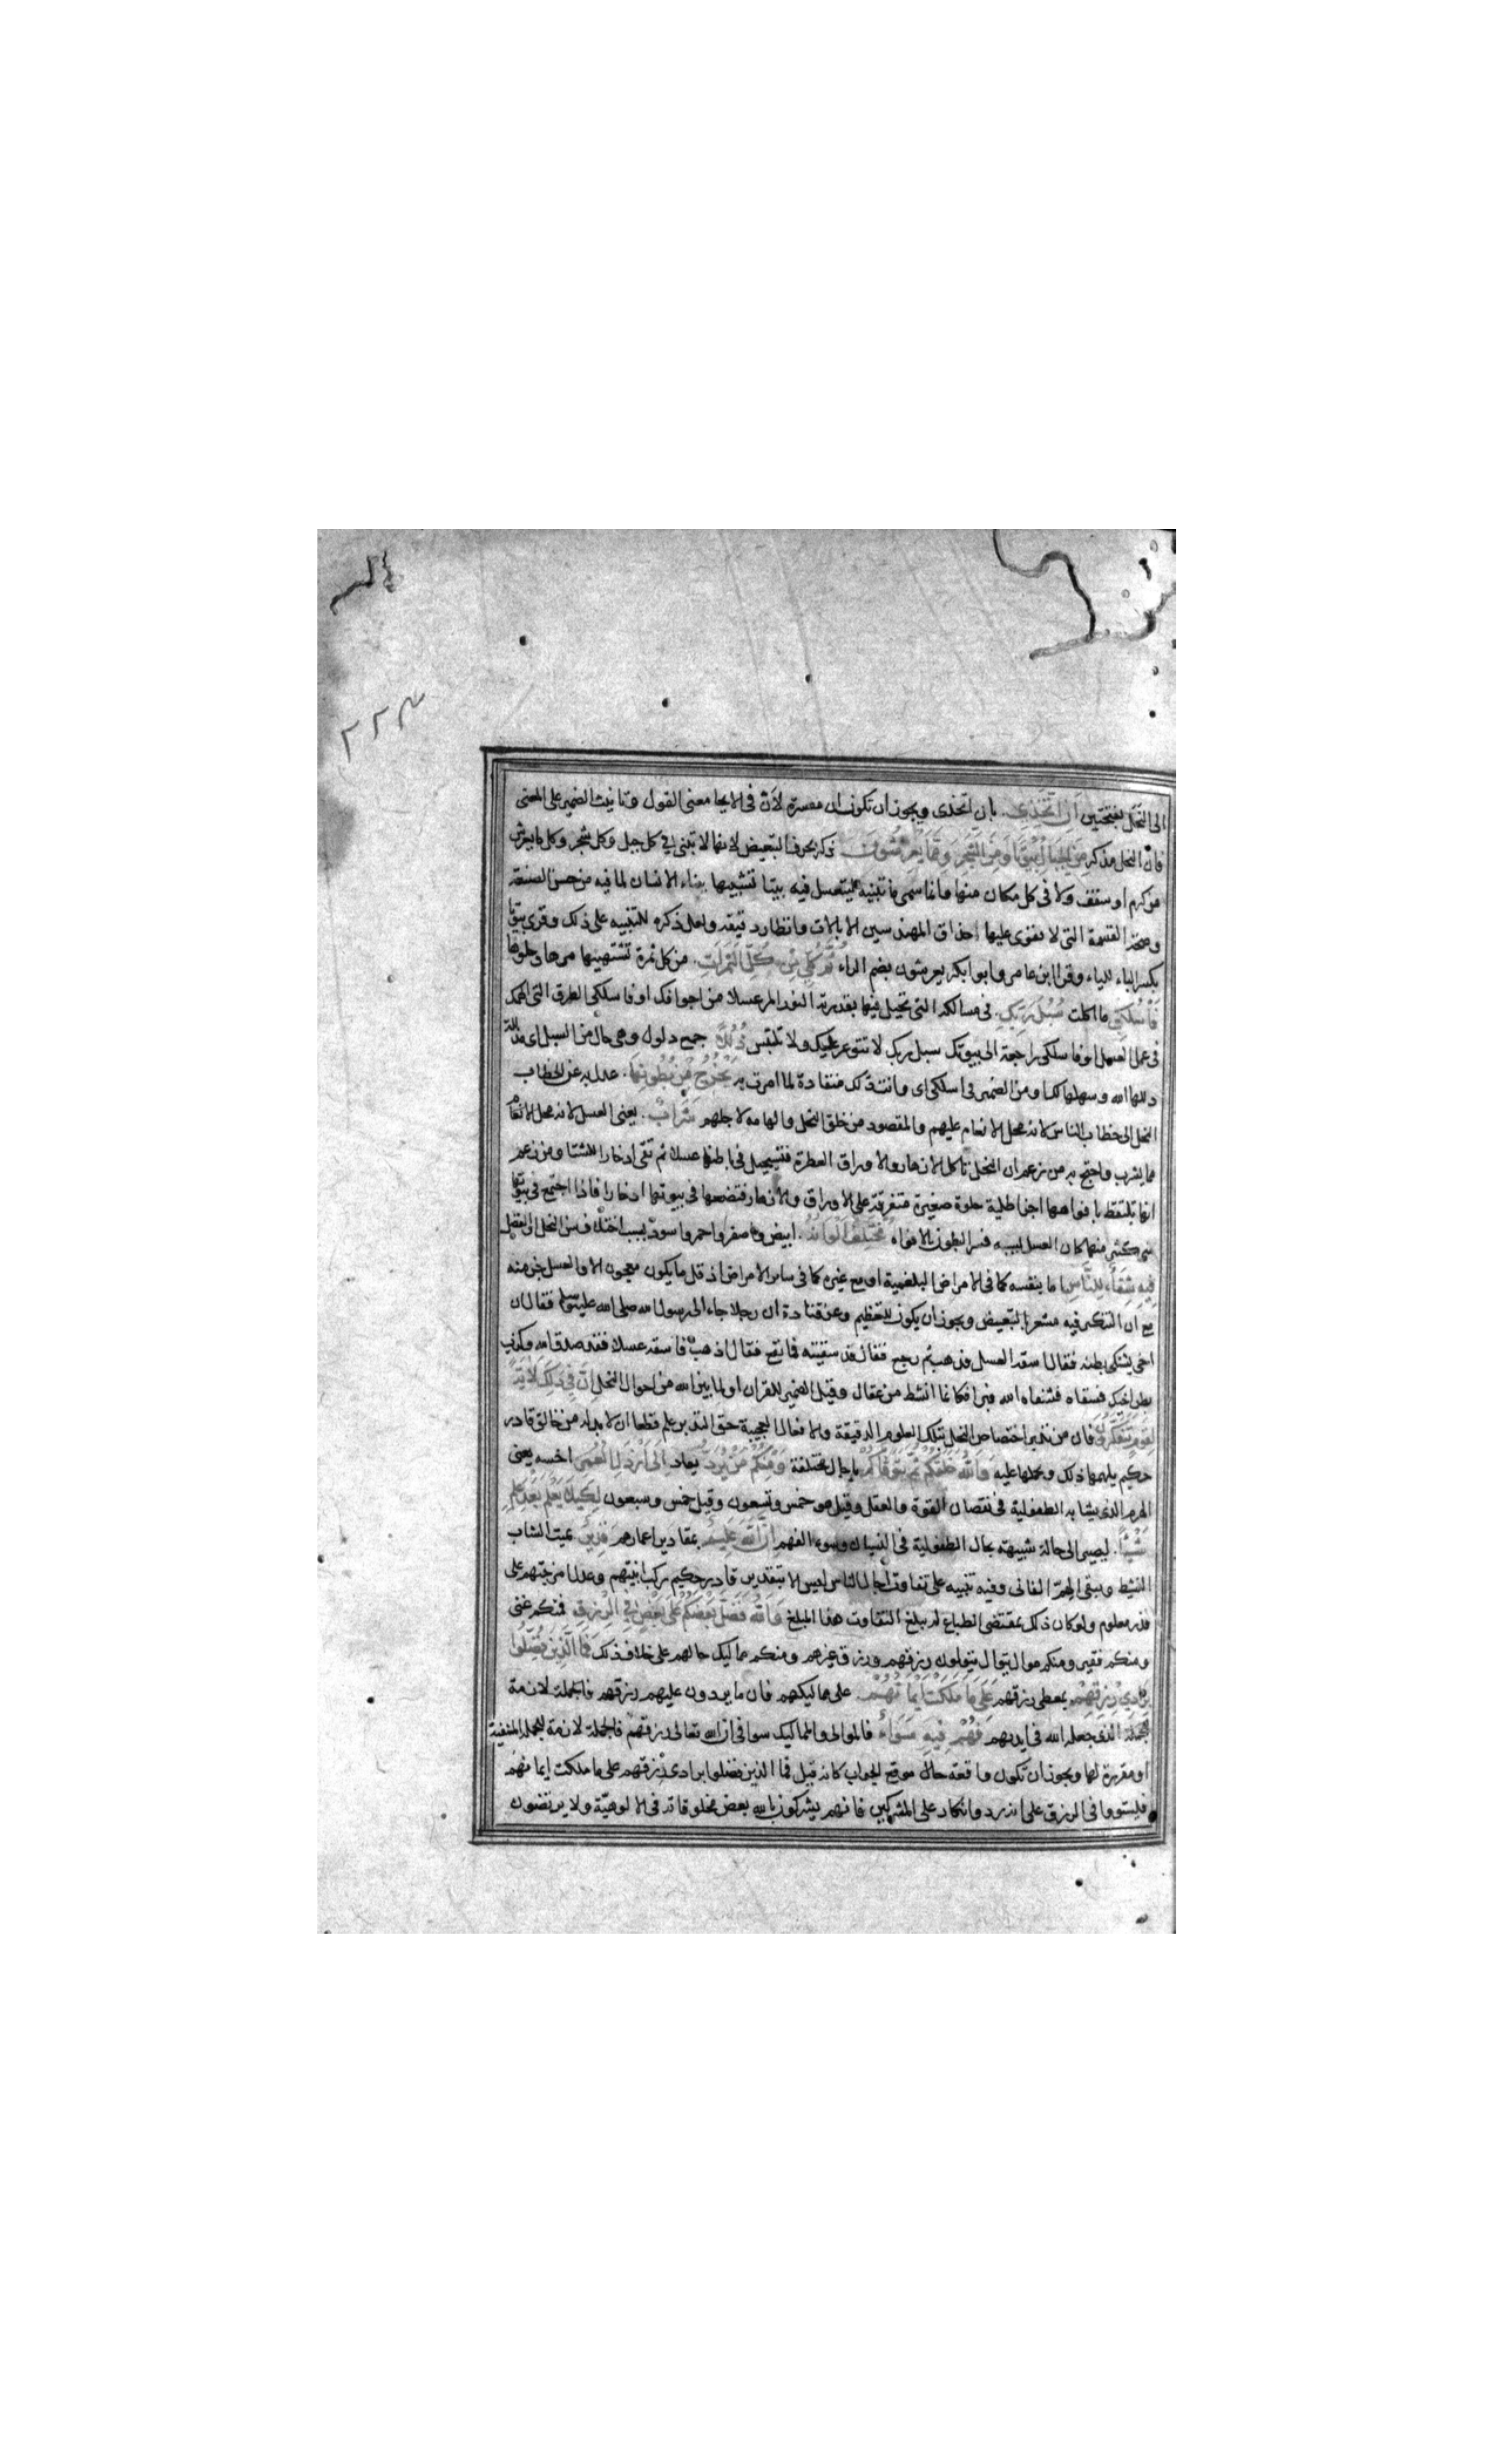 ٢٢٣
الى النحل بفتحتين اَنِ اتَّخِذِى بان اتخذى ويجوز ان تكون ان مفسرة لان فى الايحا معنى القول وتانيث الضمير على المعنى
فان النحل مذكر مِنَ الْجِبَالِ بُيُوتًا وَمِنَ الشَّجَرِ وَمِمَّا يَعْرِشُونَ ذكر بحرف التبعيض لانها لا تبنى فى كل جبل وكل شجر وكل ما يعرش
من كرم او سقف ولا فى كل مكان منها وانما سمى ما تبنيه لتتعسل فيه بيتا تشبيها ببناء الانسان لما فيه من حسن الصنعة
وصحة القسمة التى لا يقوى عليها حذاق المهندسين الا بالات وانظار دقيقة ولعل ذكره للتنبيه على ذلك وقرئ بيوتا
بكسر الباء للياء وقرا ابن عامر وابو بكر يعرشون بضم الراء ثُمَّ كُلِى مِنْ كُلِّ الثَّمَرَاتِ من كل ثمرة تشتهينها مرها وحلوها
فَاسْلُكِى ما اكلت سُبُلَ رَبِّكِ فى مسالكه التى تحيل فيها بقدرته النور المر عسلا من اجوافك او فاسلكى الطرق التى الهمك
فى عمل العسل او فاسلكى راجعة الى بيوتك سبل ربك لا تتوعر عليك ولا تلتبس ذُلُلًا جمع ذلول وهى حال من السبل اى مذللة
ذللها الله وسهلها لك او من الضمير فى اسلكى اى وانت ذلل منقادة لما امرت به يَخْرُجُ مِنْ بُطُونِهَا عدل به عن خطاب
النحل الى خطاب الناس لانه محل الانعام عليهم والمقصود من خلق النحل والهامه لاجلهم شَرَابٌ يعنى العسل لانه
مما يشرب واحتج به من زعم ان النحل تاكل الازهار والاوراق العطرة فتستحيل فى باطنها عسلا ثم تقئ ادخارا للشتا ومن زعم
انها تلتقط بافواهها اجزا طلية حلوة صغيرة متفرقة على الاوراق والازهار فتضعها فى بيوتها ادخارا فاذا اجتمع فى بيوتها
شئ كثير منها كان العسل فسر البطون بالافواه مُخْتَلِفٌ اَلْوَانُهُ ابيض واصفر واحمر واسود بسبب اختلاف سن النحل
فِيهِ شِفَاءٌ لِلنَّاسِ اما بنفسه كما فى الامراض البلغمية او مع غيره كما فى سائر الامراض اذ قل ما يكون معجون الا والعسل جزء منه
مع ان التنكير فيه مشعر بالتبعيض ويجوز ان يكون للتعظيم وعن قتادة ان رجلا جاء الى رسول الله صلى الله عليه وسلم فقال ان
اخى يشتكى بطنه فقال اسقه العسل فذهب ثم رجع فقال قد سقيته فما نفع فقال اذهب فاسقه عسلا فقد صدق الله وكذب
بطن اخيك فسقاه فشفاه الله فبرا فكانما انشط من عقال وقيل الضمير للقران او لما بين الله من احوال النحل اِنَّ فِى ذَلِكَ لَايَةً
لِقَوْمٍ يَتَفَكَّرُونَ فان من تدبر اختصاص النحل بتلك العلوم الدقيقة والافعال العجيبة حق التدبر علم قطعا ان لا بد له من خالق قادر
حكيم يلهمها ذلك ويحملها عليه وَاللَّهُ خَلَقَكُمْ ثُمَّ يَتَوَفَّاكُمْ باجال مختلفة وَمِنْكُمْ مَنْ يُرَدُّ يعاد اِلَى اَرْذَلِ الْعُمُرِ اخسه يعنى
الهرم الذى يشابه الطفولية فى نقصان القوة والعقل وقيل هو خمس وتسعون وقيل خمس وسبعون لِكَيْلَا يَعْلَمَ بَعْدَ عِلْمٍ
شَيْئًا ليصير الى حالة شبيهة بحال الطفولية فى النسيان وسوء الفهم اِنَّ اللَّهَ عَلِيمٌ بمقادير اعمارهم قَدِيرٌ يميت الشاب
النشيط ويبقى الهرم الفانى وفيه تنبيه على تفاوت اجال الناس ليس الا بتقدير قادر حكيم ركب ابنيتهم وعدل امزجتهم على
قدر معلوم ولو كان ذلك بمقتضى الطباع لم يبلغ التفاوت هذا المبلغ وَاللَّهُ فَضَّلَ بَعْضَكُمْ عَلَى بَعْضٍ فِى الرِّزْقِ فمنكم غنى
ومنكم فقير ومنكم موال يتولون رزقهم ورزق غيرهم ومنكم مماليك حالهم على خلاف ذلك فَمَا الَّذِينَ فُضِّلُوا
بِرَادِّى رِزْقِهِمْ بمعطى رزقهم عَلَى مَا مَلَكَتْ اَيْمَانُهُمْ على مماليكهم فان ما يردون عليهم رزقهم
الذى جعله الله فى ايديهم فَهُمْ فِيهِ سَوَاءٌ فالموالى والمماليك سوا فى ان الله تعالى رزقهم فالجملة لازمة للجملة المنفية
او مقررة لها ويجوز ان تكون واقعة موقع الجواب كانه قيل فما الذين فضلوا برادى رزقهم على ما ملكت ايمانهم
فيستووا فى الرزق على انه رد وانكار على المشركين فانهم يشركون بالله بعض مخلوقاته فى الالوهية ولا يرتضون